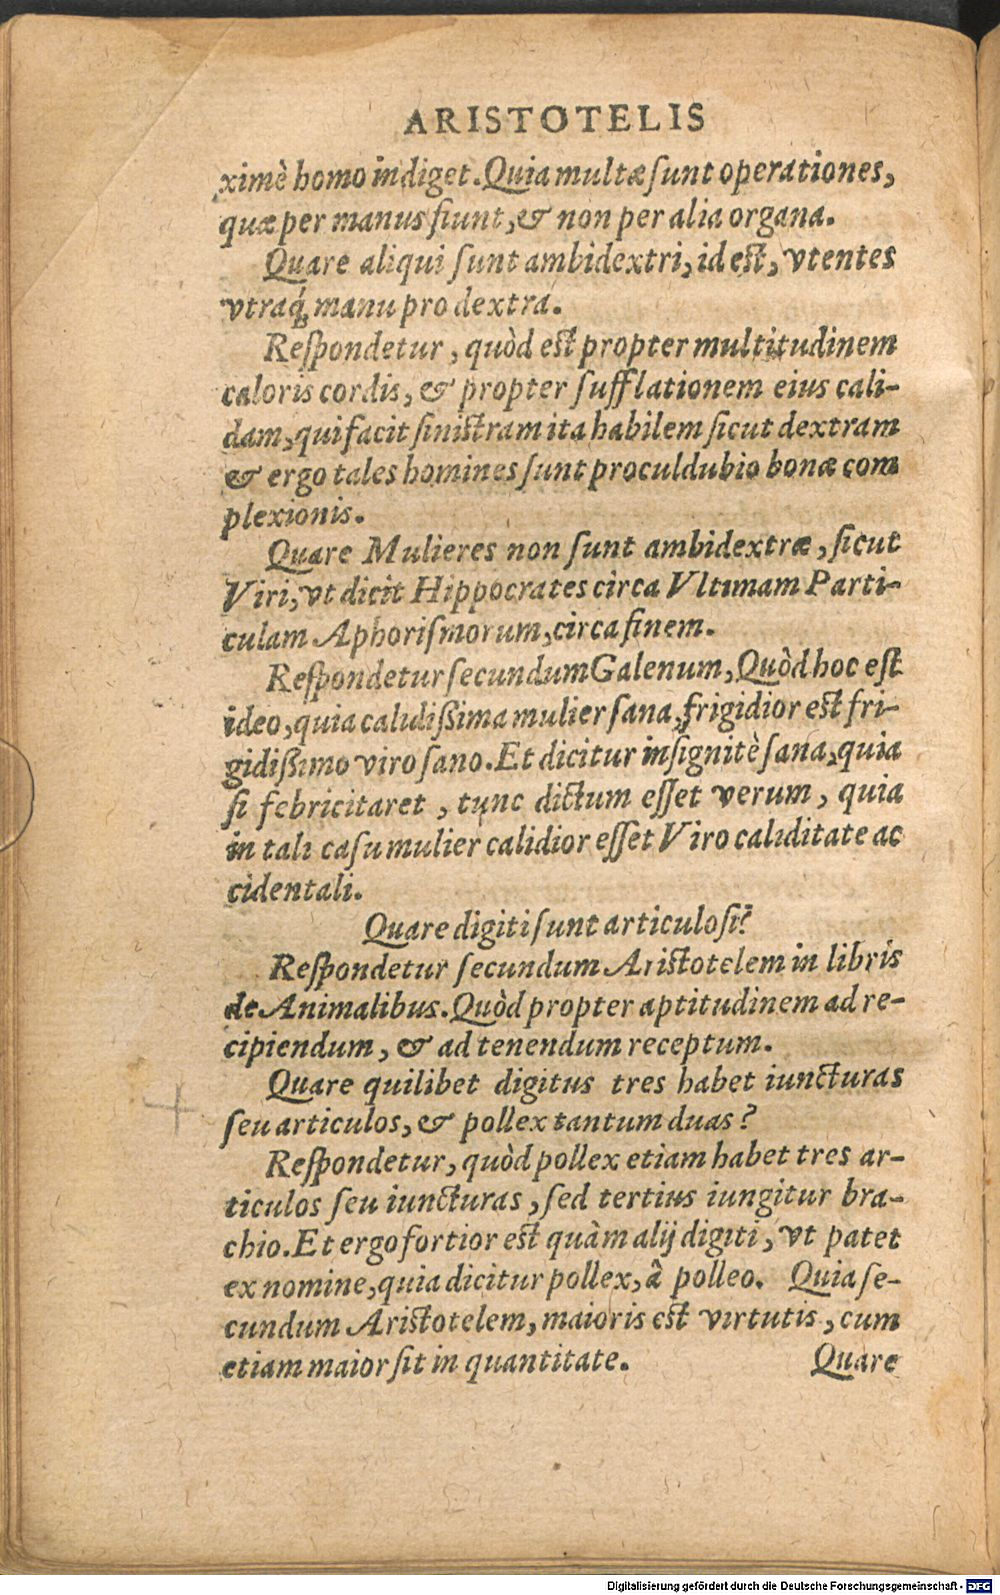 ARISTOTELIS
ximè homo indiget. Quia multæ ſunt operationes,
quæ per manus fiunt, & non per alia organa.
Quare aliqui ſunt ambidextri, id eſt, vtentes
vtraq́; manu pro dextra.
Reſpondetur, quòd eſt propter multitudinem
caloris cordis, & propter ſufflationem eius cali-
dam, qui facit ſiniſtram ita habilem ſicut dextram
& ergo tales homines ſunt proculdubio bonæ com
plexionis.
Quare Mulieres non ſunt ambidextræ, ſicut
Viri, vt dicit Hippocrates circa Vltimam Parti-
culam Aphoriſmorum, circa finem.
Reſpondetur ſecundum Galenum, Quòd hoc eſt
ideo, quia calidißima mulier ſana, frigidior eſt fri-
gidißimo viro ſano. Et dicitur inſignitè ſana, quia
ſi febricitaret, tunc dictum eſſet verum, quia
in tali caſu mulier calidior eſſet Viro caliditate ac
cidentali.
Quare digiti ſunt articuloſi?
Reſpondetur ſecundum Ariſtotelem in libris
de Animalibus. Quòd propter aptitudinem ad re-
cipiendum, & ad tenendum receptum.
Quare quilibet digitus tres habet iuncturas
ſeu articulos, & pollex tantum duas?
Reſpondetur, quòd pollex etiam habet tres ar-
ticulos ſeu iuncturas, ſed tertius iungitur bra-
chio. Et ergo fortior eſt quàm alij digiti, vt patet
ex nomine, quia dicitur pollex, â polleo. Quia ſe-
cundum Ariſtotelem, maioris eſt virtutis, cum
etiam maior ſit in quantitate. Quare
Digitalisierung gefördert durch die Deutsche Forschungsgemeinschaft - DFG